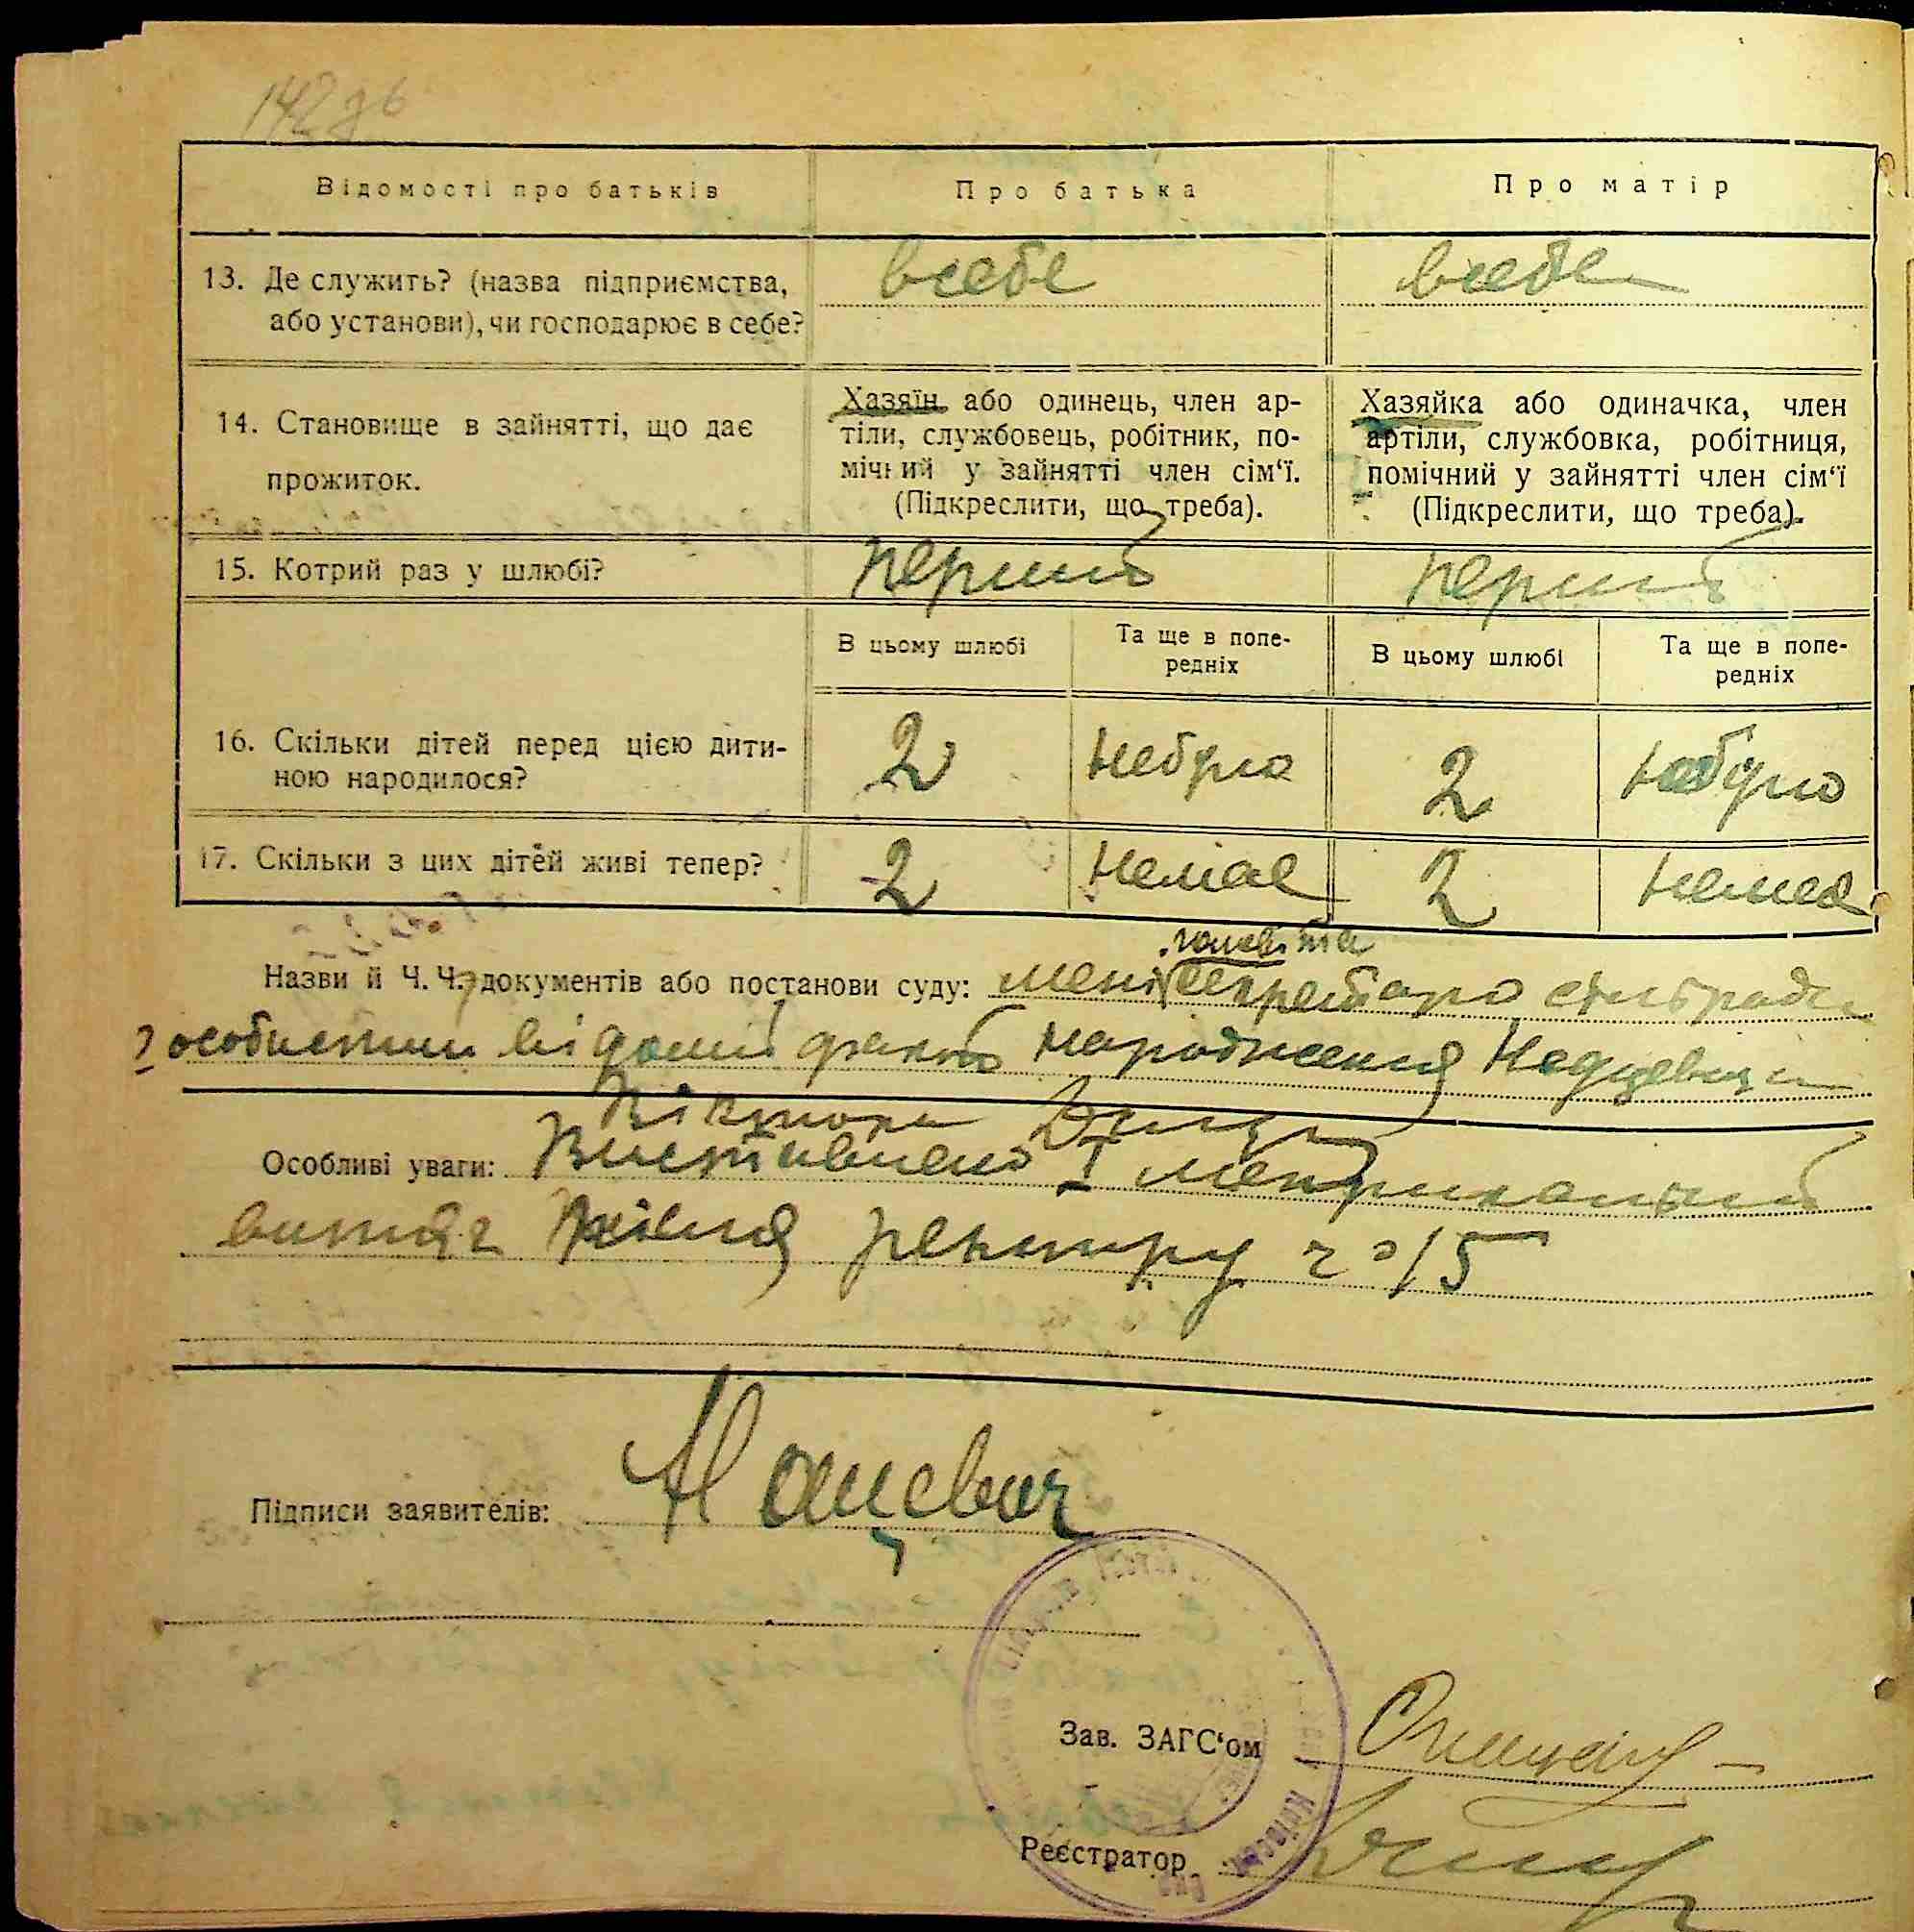 142 зв
Відомості про батьків
Про батька
Про матір
13. Де служить? (назва підприємства,
або установи), чи господарює в себе?
всебе
всебе
14. Становище в зайнятті, що дає
прожиток.
Хазяїн або одинець, член ар-
тіли, службовець, робітник, по-
мічний у зайнятті член сім‘ї.
(Підкреслити, що треба).
Хазяйка або одиначка, член
артіли, службовка, робітниця,
помічний у зайнятті член сім‘ї
(Підкреслити, що треба).
15. Котрий раз у шлюбі?
перший
перший
В цьому шлюбі
Та ще в попе-
редніх
В цьому шлюбі
Та ще в попе-
редніх
16. Скільки дітей перед цією дити-
ною народилося?
2
небуло
2
небуло
17. Скільки з цих дітей живі тепер?
2
немає
2
немає
голові та
Назви й Ч. Ч. документів або постанови суду: мені секретарю сільради
особистий відомий факт народження
Віктора
Особливі уваги: Виставлено І метрикальний
витяг
Підписи заявителів: Нацевич
Зав. ЗАГС‘ом
Реєстратор